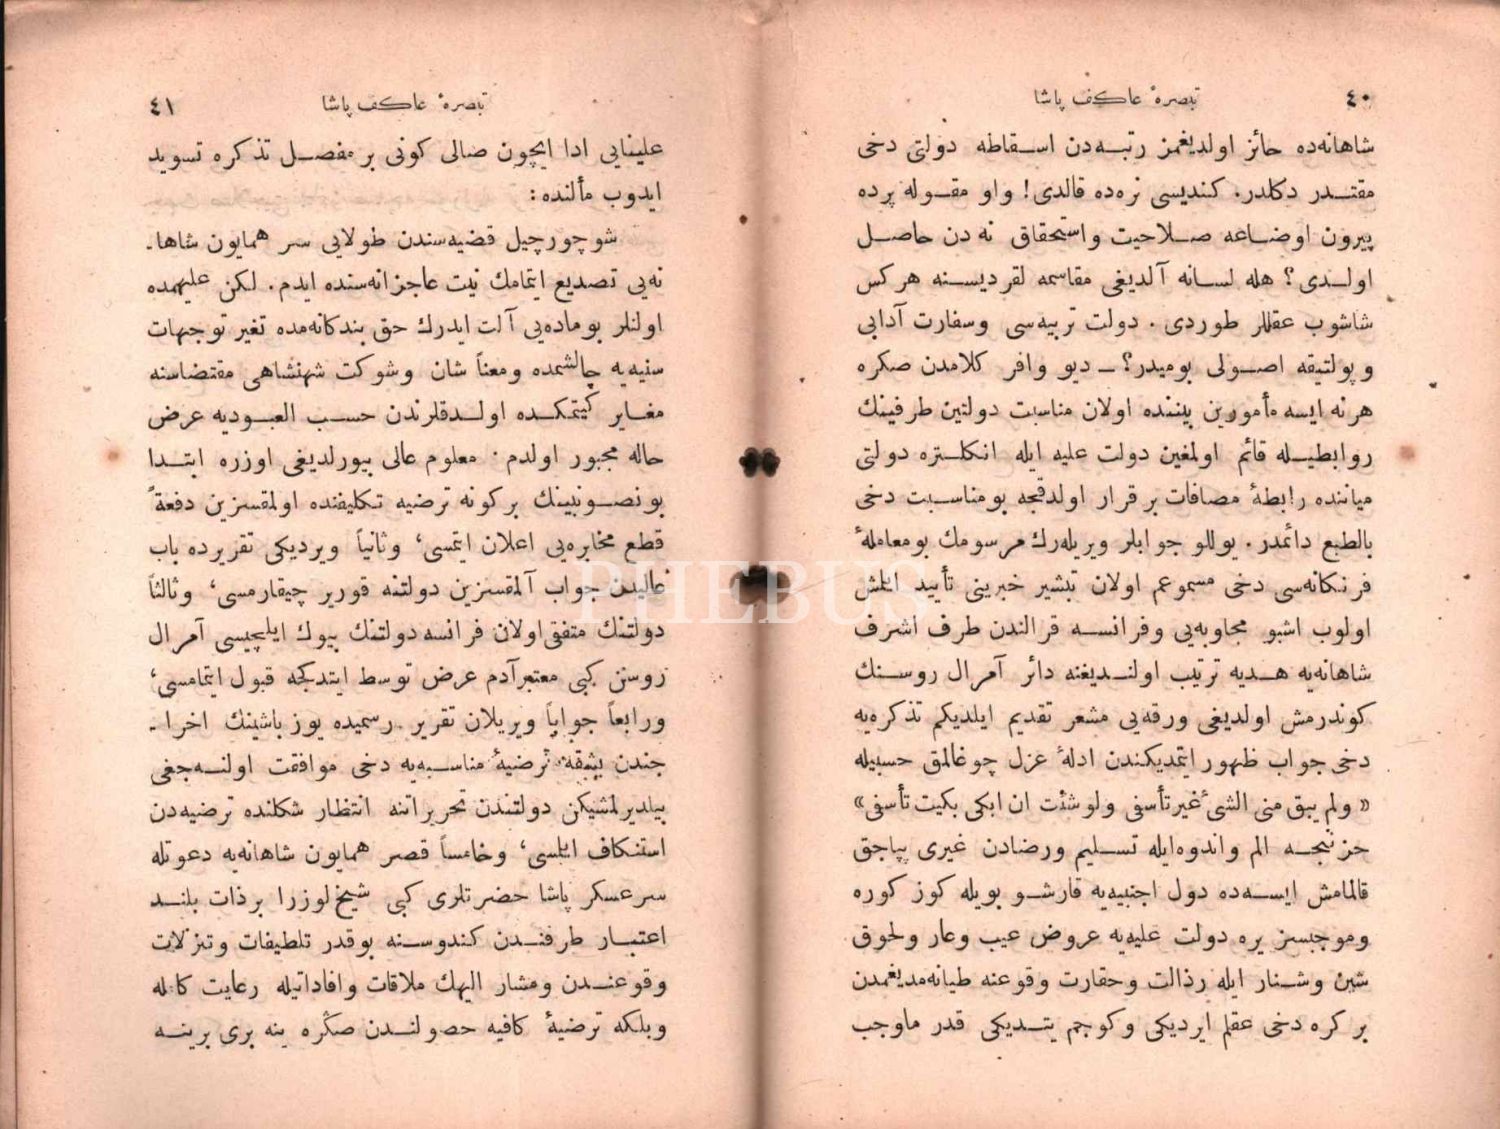 ٤٠
تبصرهٔ عاكف پاشا
شاهانه‌ده حائز اولديغمز رتبه‌دن اسقاطه دولتى دخى
مقتدر دكلدر. كنديسى نره‌ده قالدى! واو مقوله پرده
بيرون اوضاعه صلاحيت واستحقاق نه دن حاصل
اولدى؟ هله لسانه آلديغى مقاسمه لقرديسنه هركس
شاشوب عقللر طوردى. دولت تربيه‌سى وسفارت آدابى
وپولتيقه اصولى بوميدر؟ ـ ديو وافر كلامدن صكره
هرنه ايسه مأمورين بيننده اولان مناسبت دولتين طرفينك
روابطيله قائم اولمغين دولت عليه ايله انكلتره دولتى
مياننده رابطهٔ مصافات برقرار اولدقجه بومناسبت دخى
بالطبع دائمدر. يوللو جوابلر ويريله‌رك مرسومك بومعاملهٔ
فرنكانه‌سى دخى مسموعم اولان تبشير خبرينى تأييد ايلمش
اولوب اشبو مجاوبه‌يى وفرانسه قرالندن طرف اشرف
شاهانه‌يه هديه ترتيب اولنديغنه دائر آمرال روسنك
كوندرمش اولديغى ورقه‌يى مشعر تقديم ايلديكم تذكره‌يه
دخى جواب ظهور ايتمديكندن ادلهٔ عزل چوغالمق حسبيله
« ولم يبق منى الشئ غيرتأسفى ولوشئت ان ابكى بكيت تأسفى»
حزننجه الم واندوه‌ايله تسليم ورضادن غيرى يپاجق
قالمامش ايسه‌ده دول اجنبيه‌يه قارشو بويله كوز كوره
وموجبسز يره دولت عليه‌يه عروض عيب وعار ولحوق
شين وشنار ايله رذالت وحقارت وقوعنه طيانه‌مديغمدن
بركره دخى عقلم ايرديكى وكوجم يتديكى قدر ماوجب
٤١
تبصرهٔ عاكف پاشا
علينايى ادا ايچون صالى كونى بر مفصل تذكره تسويد
ايدوب مألنده:
شوچورچيل قضيه‌سندن طولايى سر همايون شاها-
نه‌يى تصديع ايتمامك نيت عاجزانه‌سنده ايدم. لكن عليهمده
اولنلر بوماده‌يى آلت ايدرك حق بندكانه‌مده تغير توجهات
سنيه‌يه چالشمده ومعناً شان وشوكت شهنشاهى مقتضاسنه
مغاير كيتمكده اولدقلرندن حسب العبوديه عرض
حاله مجبور اولدم. معلوم عالى بيورلديغى اوزره ابتدا
بونصونبينك بركونه ترضيه تكليفنده اولمقسزين دفعةً
قطع مخابره‌يى اعلان ايتمسى، وثانياً ويرديكى تقريرده باب
عاليدن جواب آلمقسزين دولتنه قورير چيقارمسى، وثالثاً
دولتنك متفقى اولان فرانسه دولتنك بيوك ايلچيسى آمرال
روسن كبى معتبرآدم عرض توسط ايتدكجه قبول ايتمامسى،
ورابعاً جواباً ويريلان تقرير رسميده يوزباشينك اخرا-
جندن بشقه ترضيهٔ مناسبه‌يه دخى موافقت اولنه‌جغى
بيلديرلمشيكن دولتندن تحريراتنه انتظار شكلنده ترضيه‌دن
استنكاف ايلمسى، وخامساً قصر همايون شاهانه‌يه دعوتله
سرعسكر پاشا حضرتلرى كبى شيخ‌لوزرا برذات بلند
اعتبار طرفندن كندوسنه بوقدر تلطيفات وتنزلات
وقوعندن ومشار اليهك ملاقات وافاداتيله رعايت كامله
وبلكه ترضيهٔ كافيه حصولندن صكره ينه برى برينه
PHEBUS